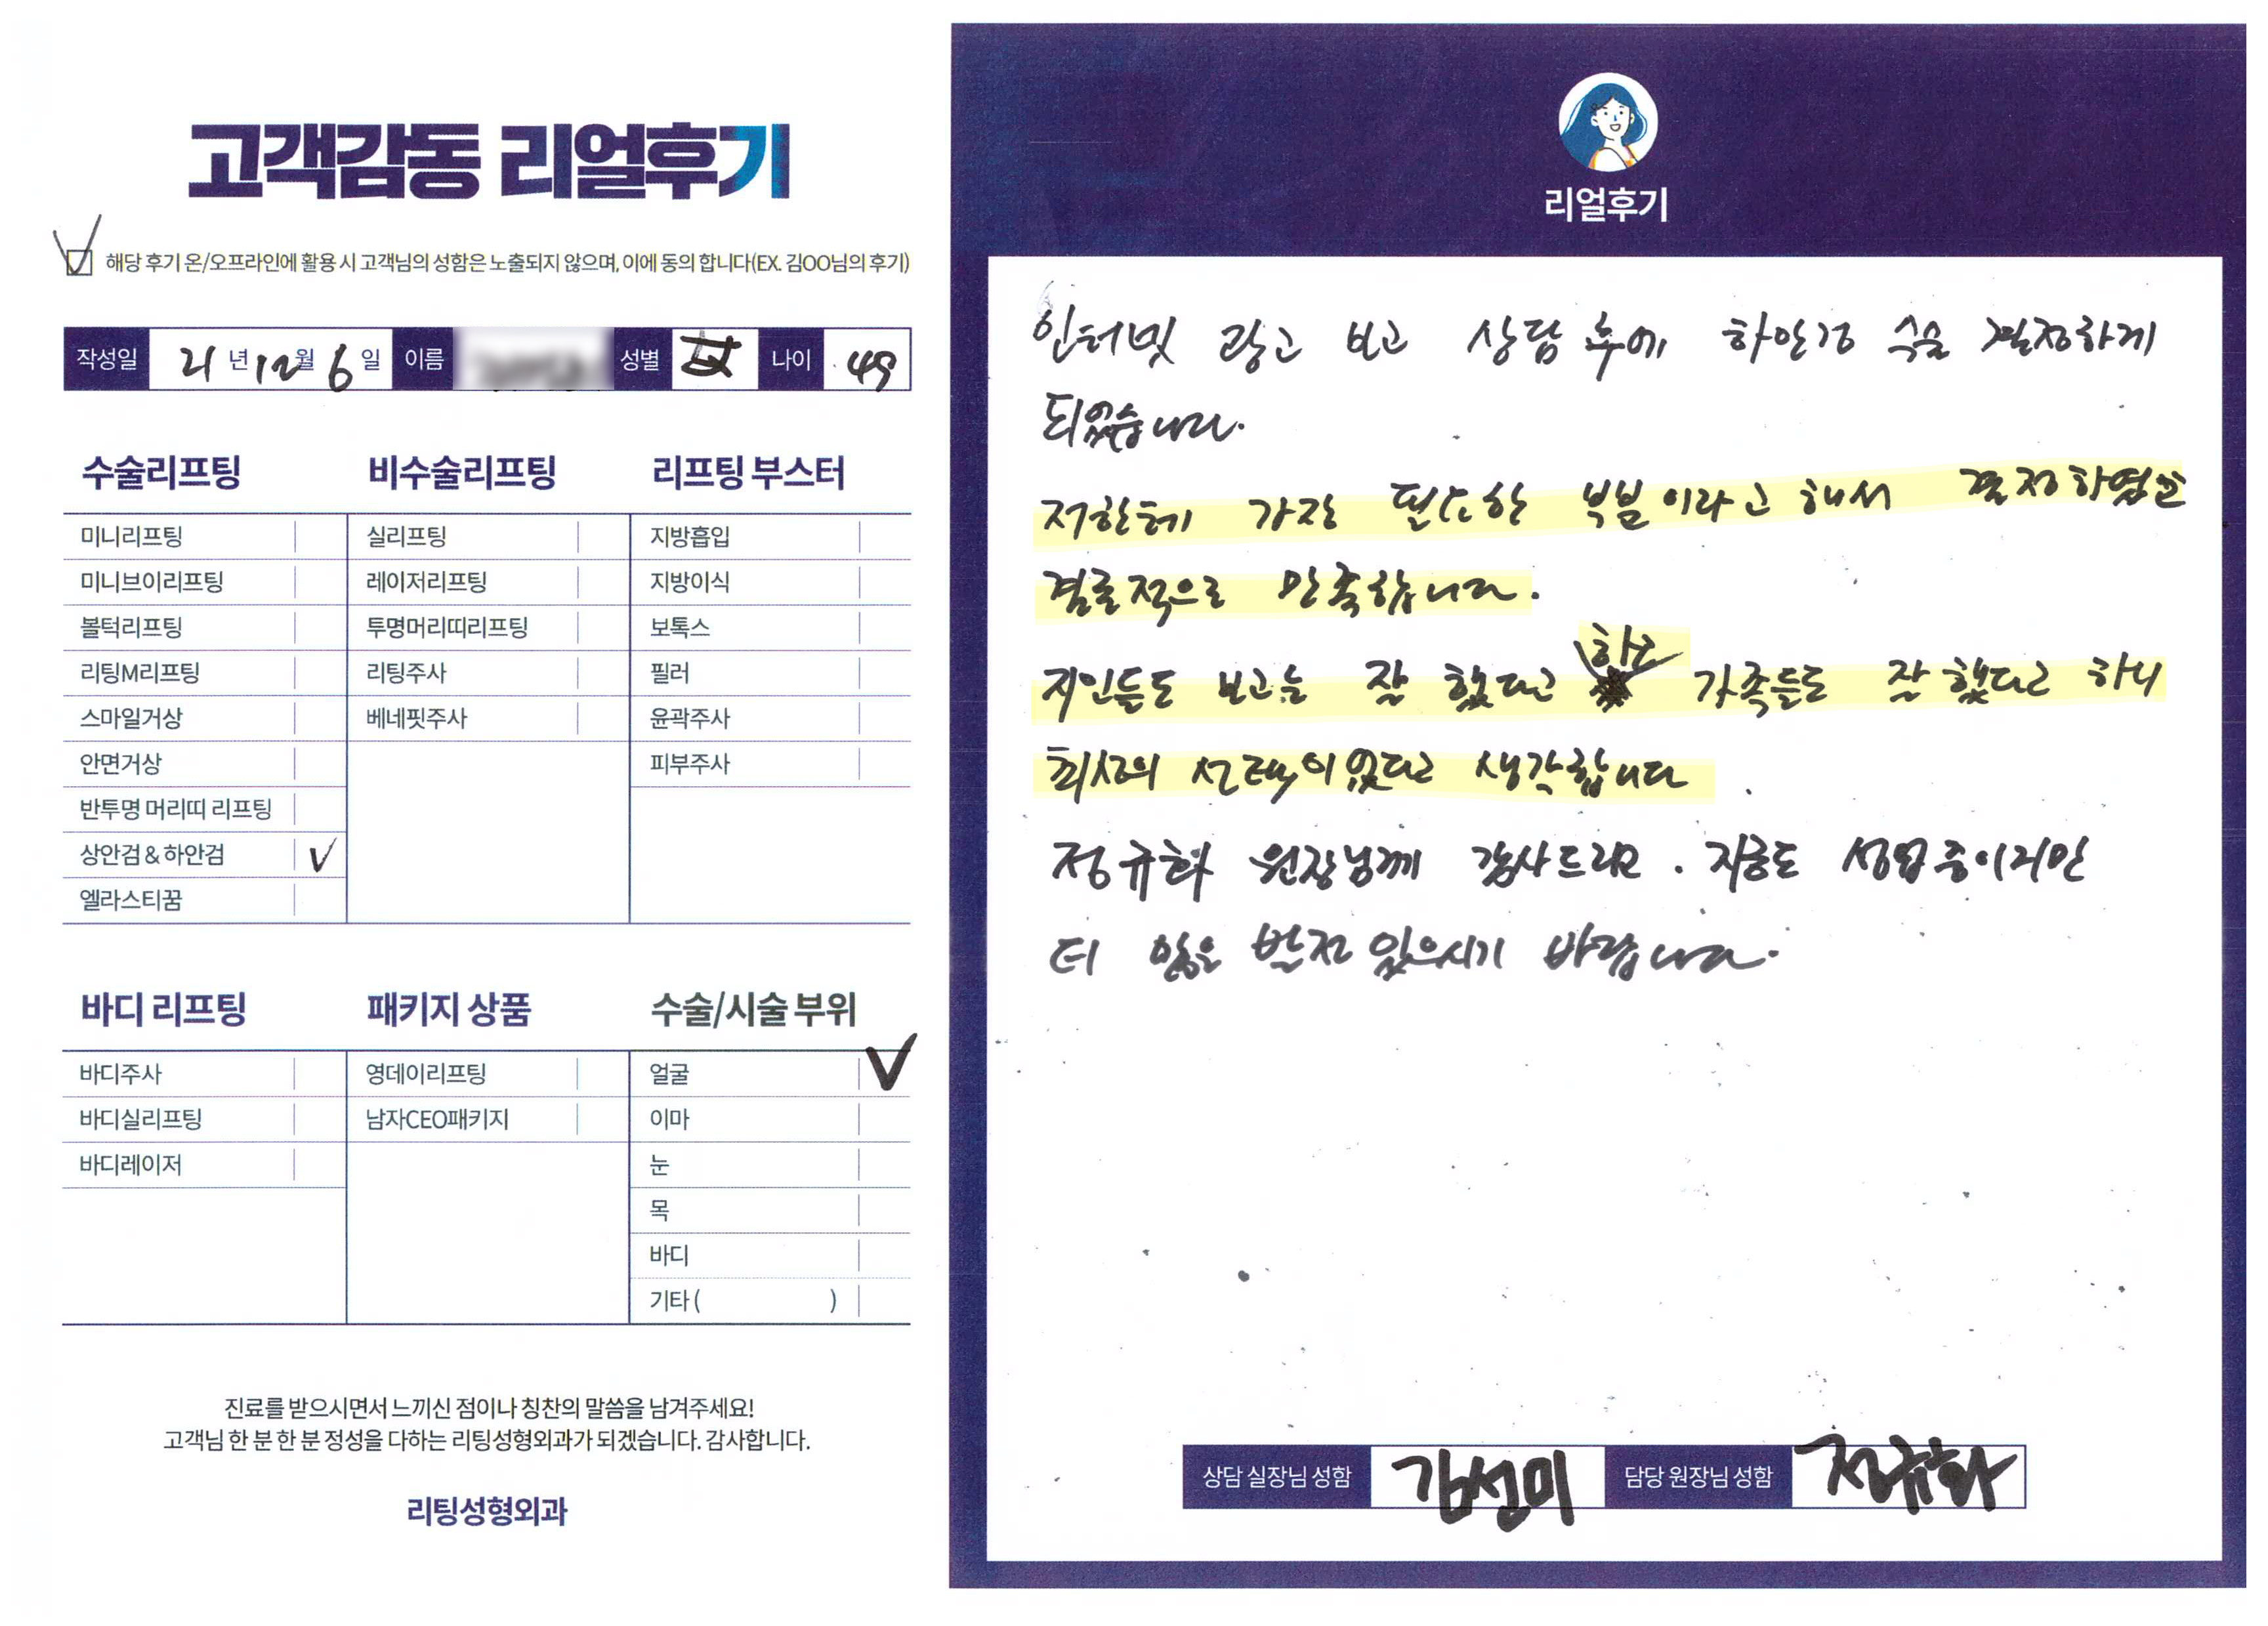 고객감동 리얼후기
해당 후기 온/오프라인에 활용 시 고객님의 성함은 노출되지 않으며, 이에 동의 합니다(EX. 김OO님의 후기)
작성일 21년 12월 6일 이름 성별 남 나이 49
수술리프팅
미니리프팅
미니브이리프팅
볼턱리프팅
리팅M리프팅
스마일거상
안면거상
반투명 머리띠 리프팅
상안검 & 하안검 V
엘라스티꿈
비수술리프팅
실리프팅
레이저리프팅
투명머리띠리프팅
리팅주사
베네핏주사
리프팅 부스터
지방흡입
지방이식
보톡스
필러
윤곽주사
피부주사
바디 리프팅
바디주사
바디실리프팅
바디레이저
패키지 상품
영데이리프팅
남자CEO패키지
수술/시술 부위
얼굴 V
이마
눈
목
바디
기타 ( )
진료를 받으시면서 느끼신 점이나 칭찬의 말씀을 남겨주세요!
고객님 한 분 한 분 정성을 다하는 리팅성형외과가 되겠습니다. 감사합니다.
리팅성형외과
리얼후기
인터넷 광고 보고 상담 후에 하안검 수술 결정하게
되었습니다.
저한테 가장 필요한 부분이라고 해서 결정하였는데
결론적으로 만족합니다.
지인들도 보고는 잘 했다고 하고 가족들도 잘 했다고 하니
최상의 선택이었다고 생각합니다.
정규화 원장님께 감사드리며. 지금도 성업중이지만
더 많은 발전 있으시기 바랍니다.
상담 실장님 성함 김선미 담당 원장님 성함 정규화